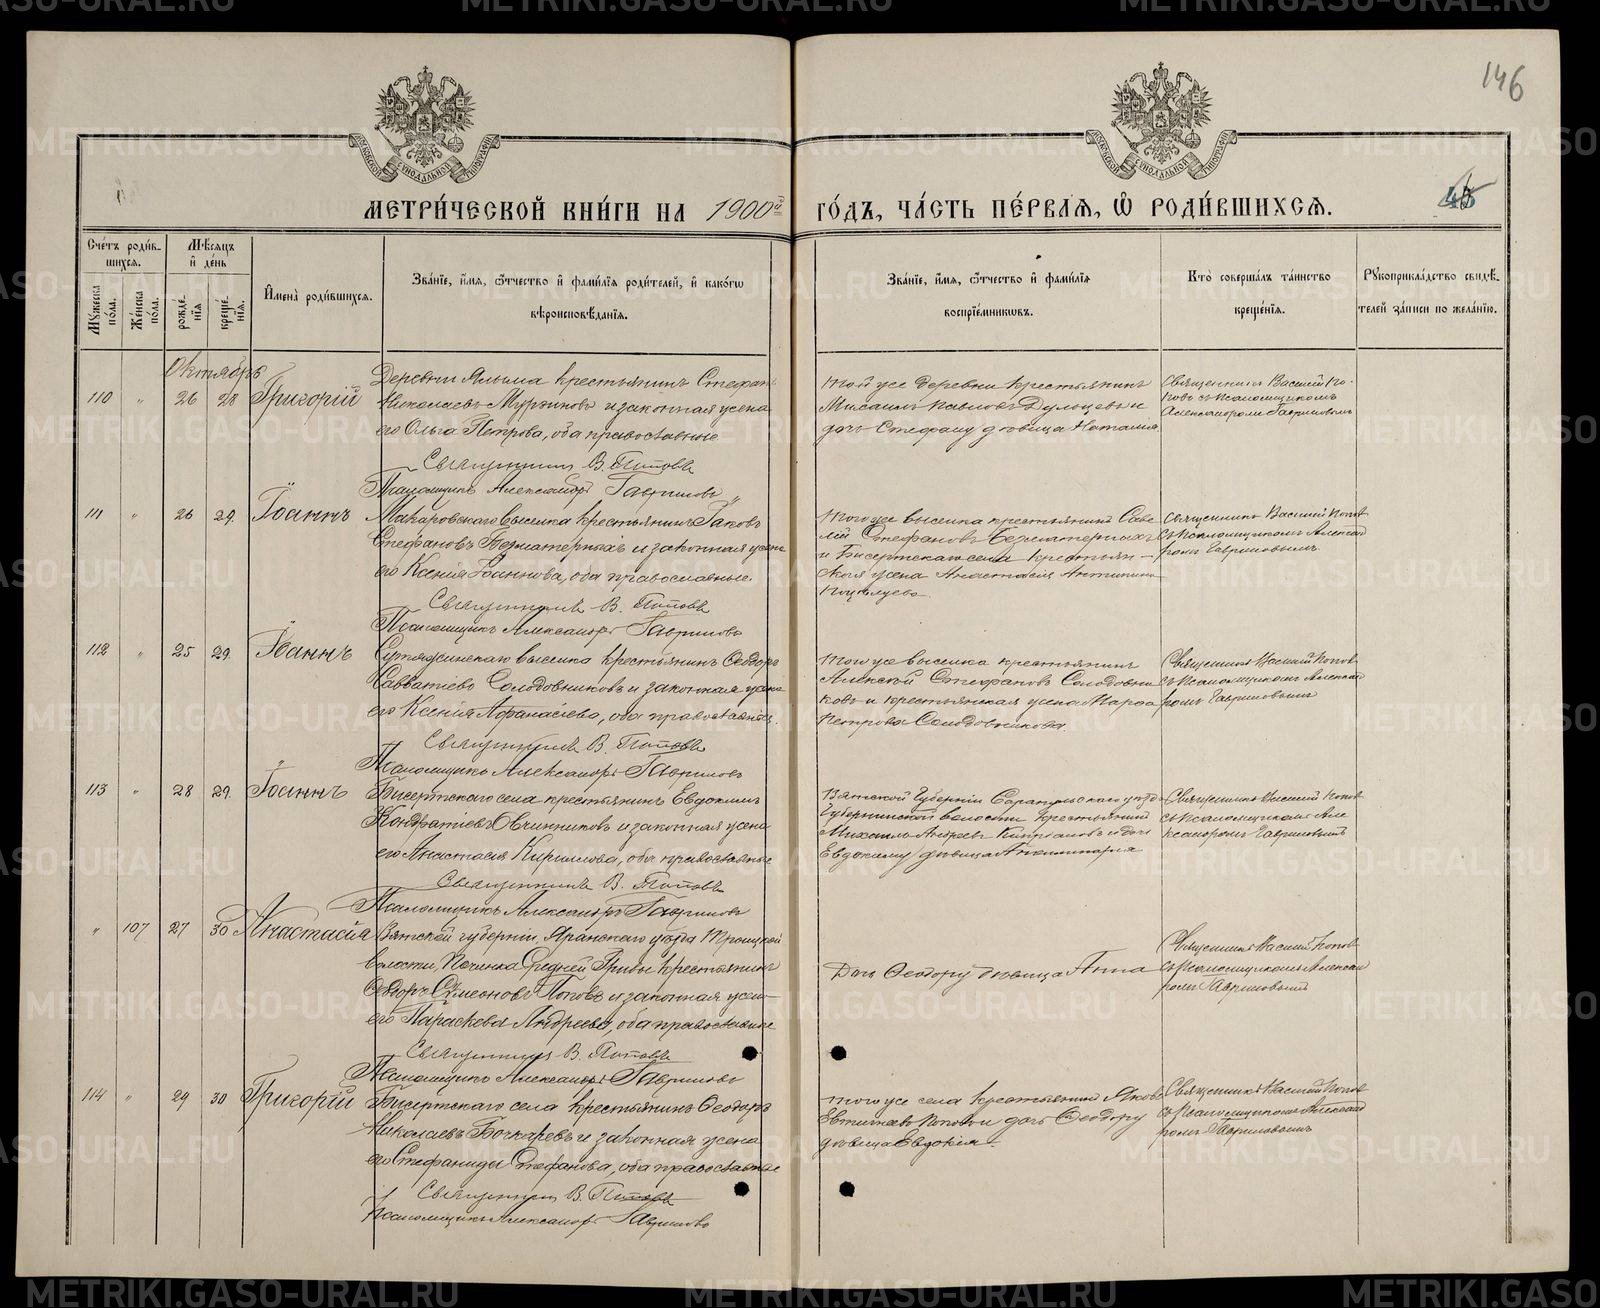 146
МОСКОВСКОЙ СѴНОДАЛЬНОЙ ТИПОГРАФІИ
МОСКОВСКОЙ СѴНОДАЛЬНОЙ ТИПОГРАФІИ
МЕТРИ́ЧЕСКОЙ КНИ́ГИ НА 1900й ГО́ДЪ, ЧА́СТЬ ПЕ́РВАЯ, Ѡ РОДИ́ВШИХСЯ.
Сче́тъ роди́вшихся.
Мѣ́сяцъ и де́нь
Мꙋ́жеска по́ла.
Же́нска по́ла.
рожде́нїя
креще́нїя.
Имена̀ роди́вшихся.
Зва́нїе, и́мя, ѻ҆́тчество и҆ фами́лїя роди́телей, и҆ како́гѡ вѣроисповѣ́данїя.
Зва́нїе, и́мя, ѻ҆́тчество и҆ фами́лїя воспрїе́мникѡвъ.
Кто̀ соверша́лъ та́инство креще́нїя.
Рꙋкоприкла́дство свидѣ́телей за́писи по жела́нїю.
Октябрь
110 " 26 28 Григорій
Деревни Ялыма крестьянинъ Стефанъ
Николаевъ Мурзиновъ и законная жена
его Ольга Петрова, оба православные
Священникъ В. Поповъ
Псаломщикъ Александръ Гавриловъ
той же деревни крестьянинъ
Михаилъ Павловъ Дульцевъ и
дочь Стефану дѣвица Наталія
Священникъ Василій Поповъ съ псаломщикомъ
Александромъ Гавриловымъ
111 " 26 29. Іоаннъ
Макаровскаго выселка крестьянинъ Іаковъ
Стефановъ Безматерныхъ и законная жена
его Ксенія Іоаннова, оба православные.
Священникъ В. Поповъ
Псаломщикъ Александръ Гавриловъ
того же выселка крестьянинъ Савелій Стефановъ Безматерныхъ
и Бисертскаго села крестьянская жена Анастасія Антипина
Священникъ Василій Поповъ
съ псаломщикомъ Александромъ Гавриловымъ
112 " 25 29. Іоаннъ
выселка крестьянинъ Ѳеодоръ
Савватіевъ Солодовниковъ и законная жена
его Ксенія Аѳанасіева, оба православные.
Священникъ В. Поповъ
Псаломщикъ Александръ Гавриловъ
того же выселка крестьянинъ
Алексѣй Стефановъ Солодовниковъ и крестьянская жена
Петрова Солодовникова.
Священникъ Василій Поповъ
съ псаломщикомъ Александромъ Гавриловымъ
113 " 28 29. Іоаннъ
Бисертскаго села крестьянинъ Евдокимъ
Кондратіевъ Овчинниковъ и законная жена
его Анастасія Кириллова, оба православные
Священникъ В. Поповъ
Псаломщикъ Александръ Гавриловъ
Вятской губерніи Сарапульскаго уѣзда
волости крестьянинъ
Михаилъ Андреевъ и дочь
Евдокиму дѣвица Апполинарія
Священникъ Василій Поповъ
съ псаломщикомъ Александромъ Гавриловымъ
" 107 27 30 Анастасія
Вятской губерніи, Яранскаго уѣзда Троицкой
волости, Починка Средней Гривы крестьянинъ
Ѳеодоръ Сѵмеоновъ Поповъ и законная жена
его Параскева Андреева, оба православные
Священникъ В. Поповъ
Псаломщикъ Александръ Гавриловъ
Дочь Ѳеодору дѣвица Анна
Священникъ Василій Поповъ
съ псаломщикомъ Александромъ Гавриловымъ
114 " 29 30 Григорій
Бисертскаго села крестьянинъ Ѳеодоръ
Николаевъ Бочкаревъ и законная жена
его Стефанида Стефанова, оба православные
Священникъ В. Поповъ
Псаломщикъ Александръ Гавриловъ
того же села крестьянинъ Яковъ
Поповъ и дочь Ѳеодору
дѣвица Евдокія
Священникъ Василій Поповъ
съ псаломщикомъ Александромъ Гавриловымъ
METRIKI.GASO-URAL.RU